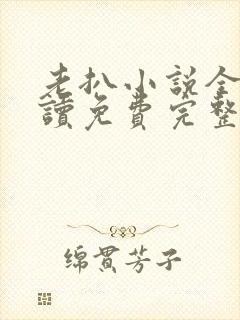 老扒小说全
讀免費完整
绵贯芳子